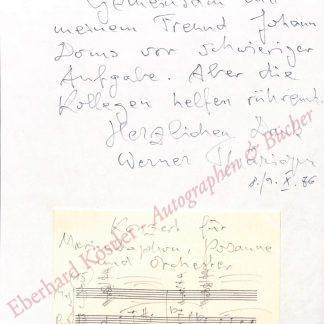 Gemeinsam mit
meinem Freund Johann
Doms vor schwieriger
Aufgabe. Aber die
Kollegen helfen rührend.
Herzlichen Dank
Werner Thärichen
8./9. X. 86
Konzert für
Marimbaphon, Posaune
und Orchester
Eberhard Köstler Autographen & Bücher